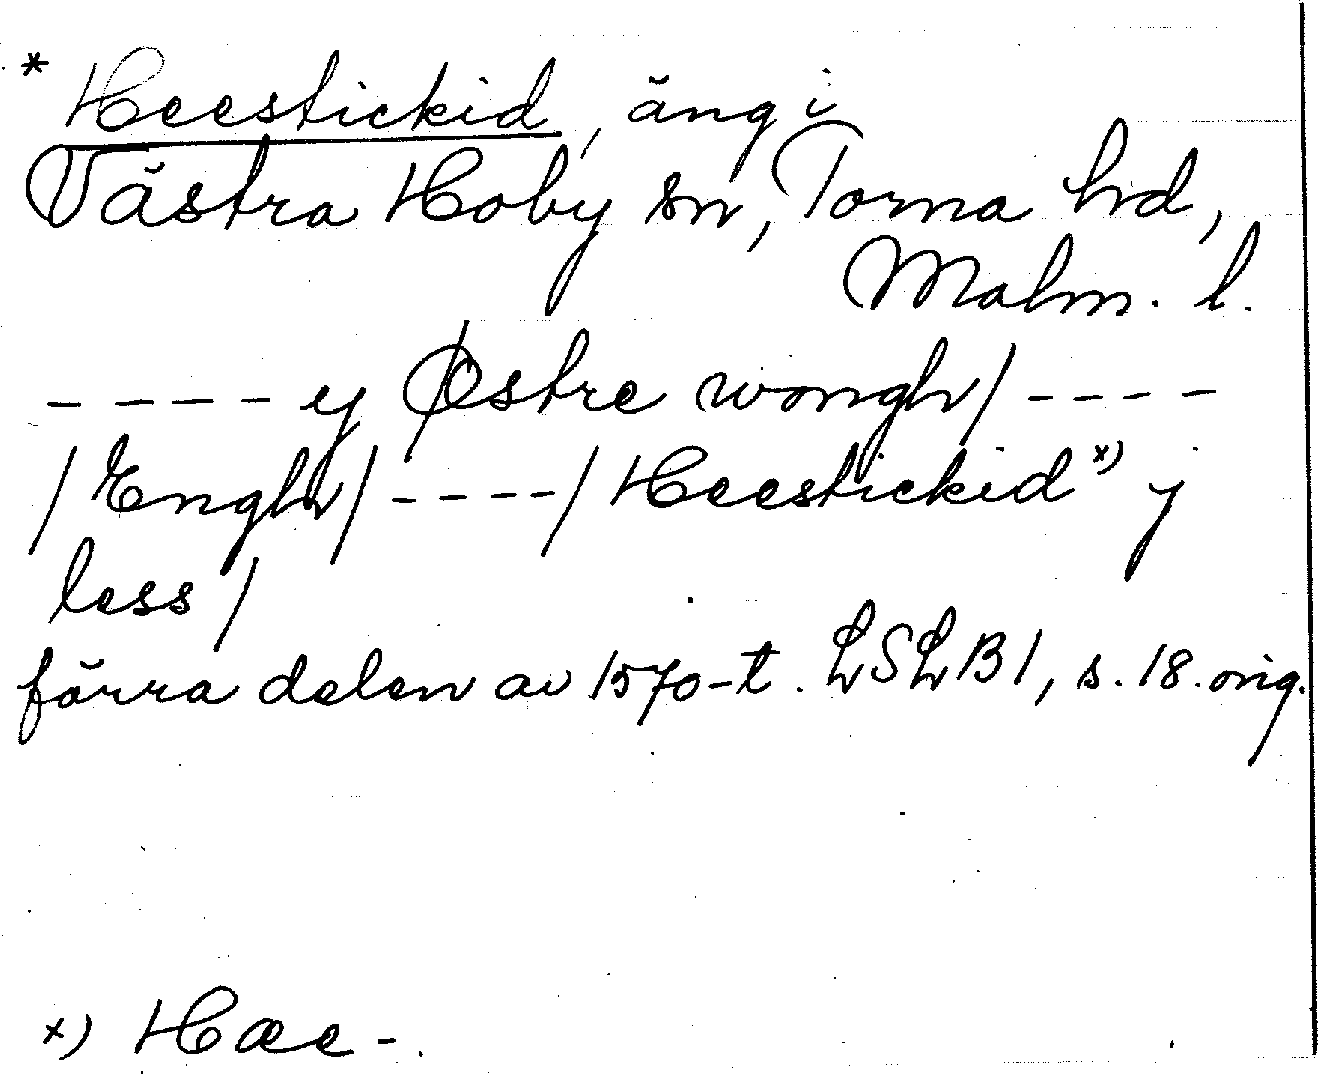 * Heestickid, äng i
Västra Hoby sn, Torna hd,
Malm. l.
- - - - y Østre wongh/ - - - -
/Engh/ - - - - / Heestickid x) y
less/
förra delen av 1570-t. LSLB1, s. 18. orig.
x) Hæe-.